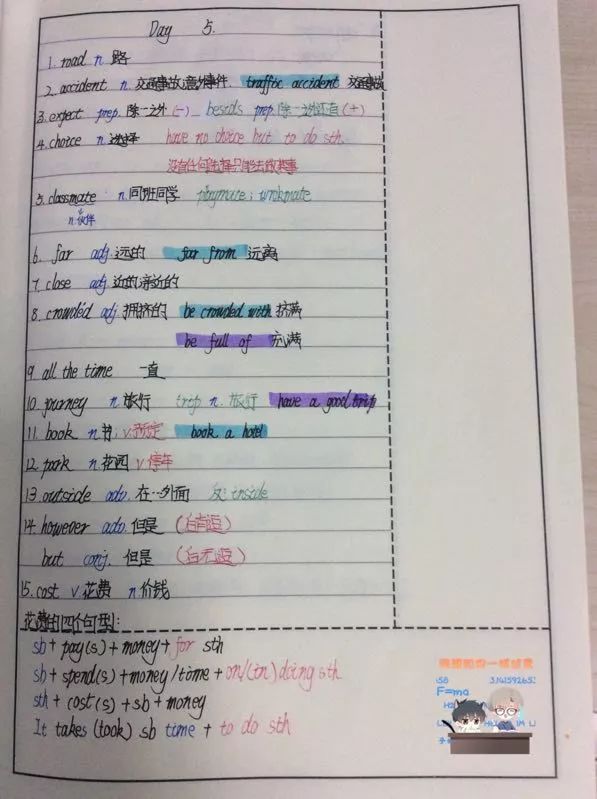 Day 5.
1. road n. 路
2. accident n. 交通事故,意外事件. traffic accident 交通事故
3. expect prep. 除…之外 (-) besids prep. 除…之外还有 (+)
4. choice n. 选择 have no choice but to do sth.
没有任何选择只能去做某事
5. classmate n. 同班同学 playmate; workmate
n. 伙伴
6. far adj. 远的 far from 远离
7. close adj. 近的,亲近的
8. crowded adj. 拥挤的 be crowded with 挤满
be full of 充满
9. all the time 一直
10. journey n. 旅行 trip n. 旅行 have a good trip
11. book n. 书; v. 预定 book a hotel
12. park n. 花园 v. 停车
13. outside adv. 在…外面 反: inside
14. however adv. 但是 (后有逗)
but conj. 但是 (后无逗)
15. cost v 花费 n. 价钱
花费的四个句型:
sb + pay(s) + money + for sth
sb + spend(s) + money/time + on/(in) doing sth
sth + cost(s) + sb + money
It takes (took) sb time + to do sth
3.14159265
F=ma